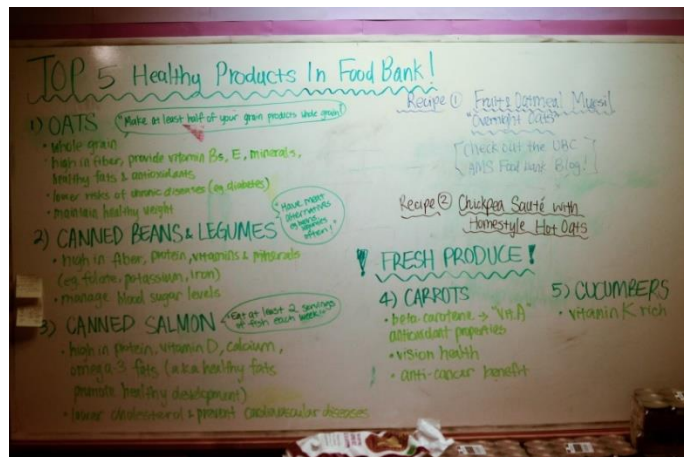 TOP 5 Healthy Products In Food Bank!
1) OATS
"Make at least half of your grain products whole grain!"
• Whole grain
• high in fiber, provide vitamin Bs, E, minerals,
healthy fats & antioxidants
• lower risks of chronic diseases (eg. diabetes)
• maintain healthy weight
2) CANNED BEANS & LEGUMES
"Have meat
alternatives
often!"
• high in fiber, protein, vitamins & minerals
(eg. folate, potassium, iron)
• manage blood sugar levels
3) CANNED SALMON
"Eat at least 2 servings
of fish each week"
• high in protein, vitamin D, calcium,
omega-3 fats (a.k.a healthy fats
promote healthy development)
• lower cholesterol & prevent cardiovascular diseases
Recipe ① Fruit & Oatmeal Muesli
"Overnight Oats"
[Check out the UBC
AMS Food Bank Blog!]
Recipe ② Chickpea Sauté with
Homestyle Hot Oats
! FRESH PRODUCE!
4) CARROTS
• beta-carotene → "Vit.A"
antioxidant properties
• vision health
• anti-cancer benefit
5) CUCUMBERS
• vitamin K rich